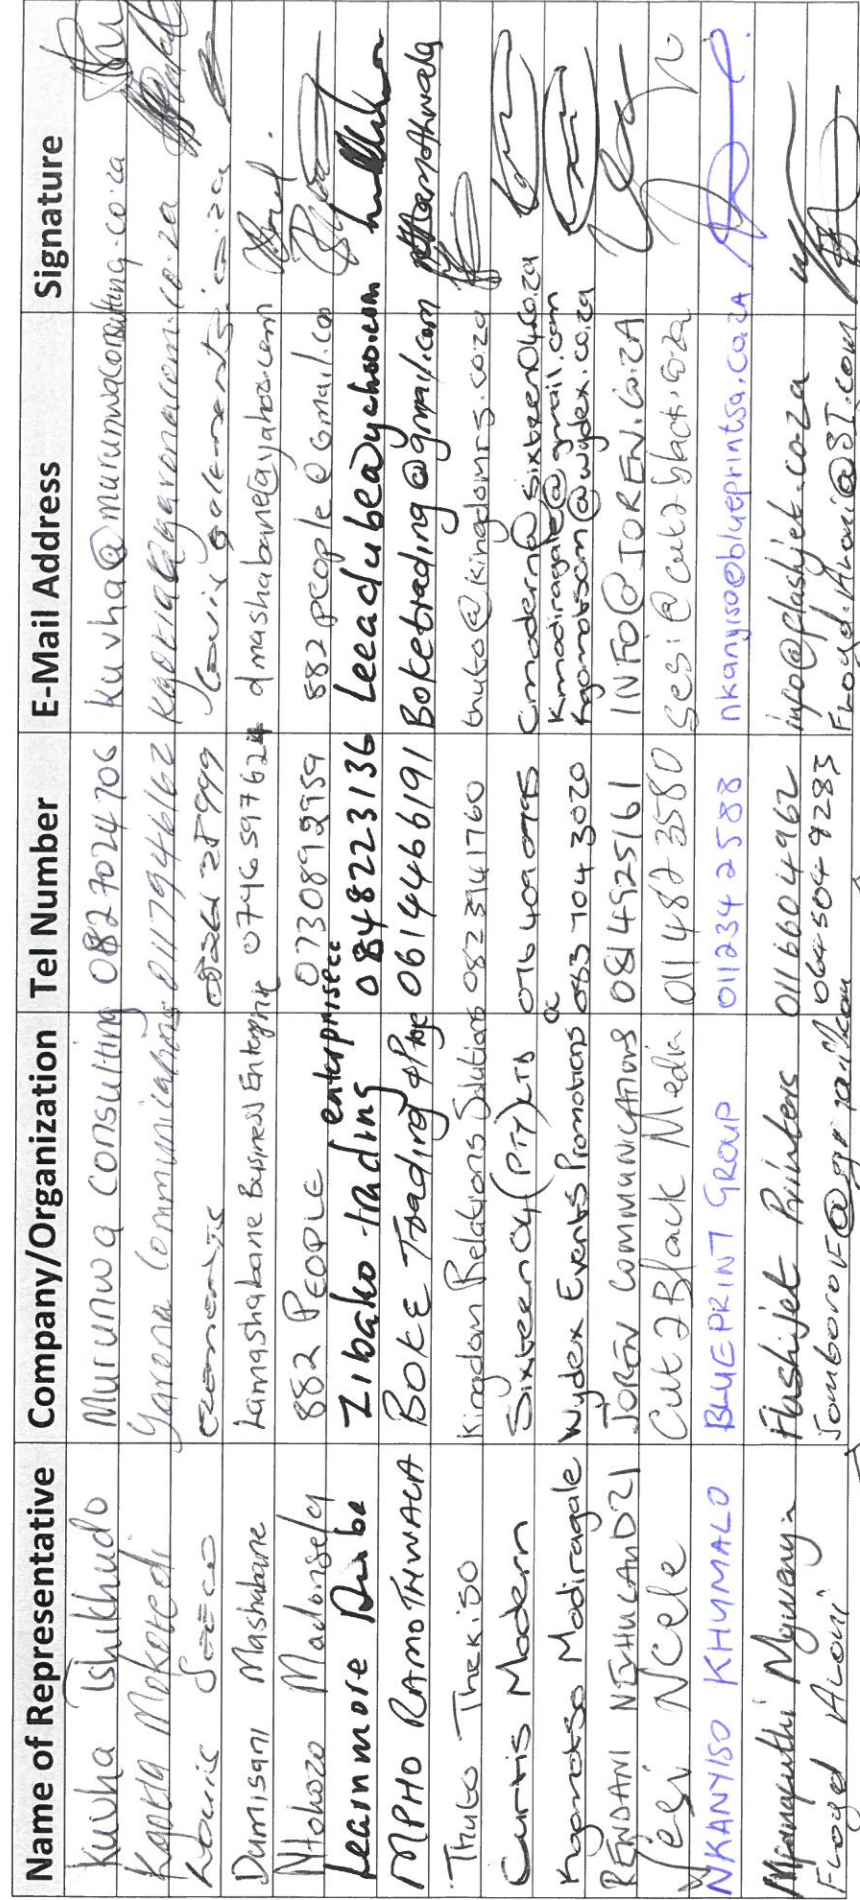 Name of Representative Company/Organization Tel Number E-Mail Address Signature
Kuvha Tshikhudo Murunwa Consulting 0827024706 kuvha@murunwaconsulting.co.za
Mokotedi Yarona Communications 0117946162
Louis
Dumisani Mashabane Lamashabane Business Enterprise 0746597624 dmashabane@yahoo.com
Ntokozo Madonsela 882 PEOPLE 0730892959 882people@gmail.com
Learnmore Dube Zibako trading enterprise cc 0848223136 leeadube@yahoo.com
MPHO RAMOTHWALA BOKE Trading & Proj 0614466191 Boketrading@gmail.com
Thuto Thekiso Kingdom Relations Solutions 0823941760 thuto@kingdomrs.co.za
Curtis Modern Sixteen04 (PTY) LTD 076 409 0795 Cmodern@sixteen04.co.za
Kgomotso Modiragale Wydex Events Promotions cc 083 704 3020 Kmodiragale@gmail.com
kgomotsom@wydex.co.za
RENDANI NETHULANDZI JOREN COMMUNICATIONS 0814925161 INFO@JOREN.CO.ZA
Sesi Ncele Cut 2 Black Media 011 482 3580 sesi@cut2black.co.za
NKANYISO KHUMALO BLUEPRINT GROUP 011 234 2588 nkanyiso@blueprintsa.co.za
Flashjet Printers 011 660 4962 info@flashjet.co.za
Floyd 0645049283